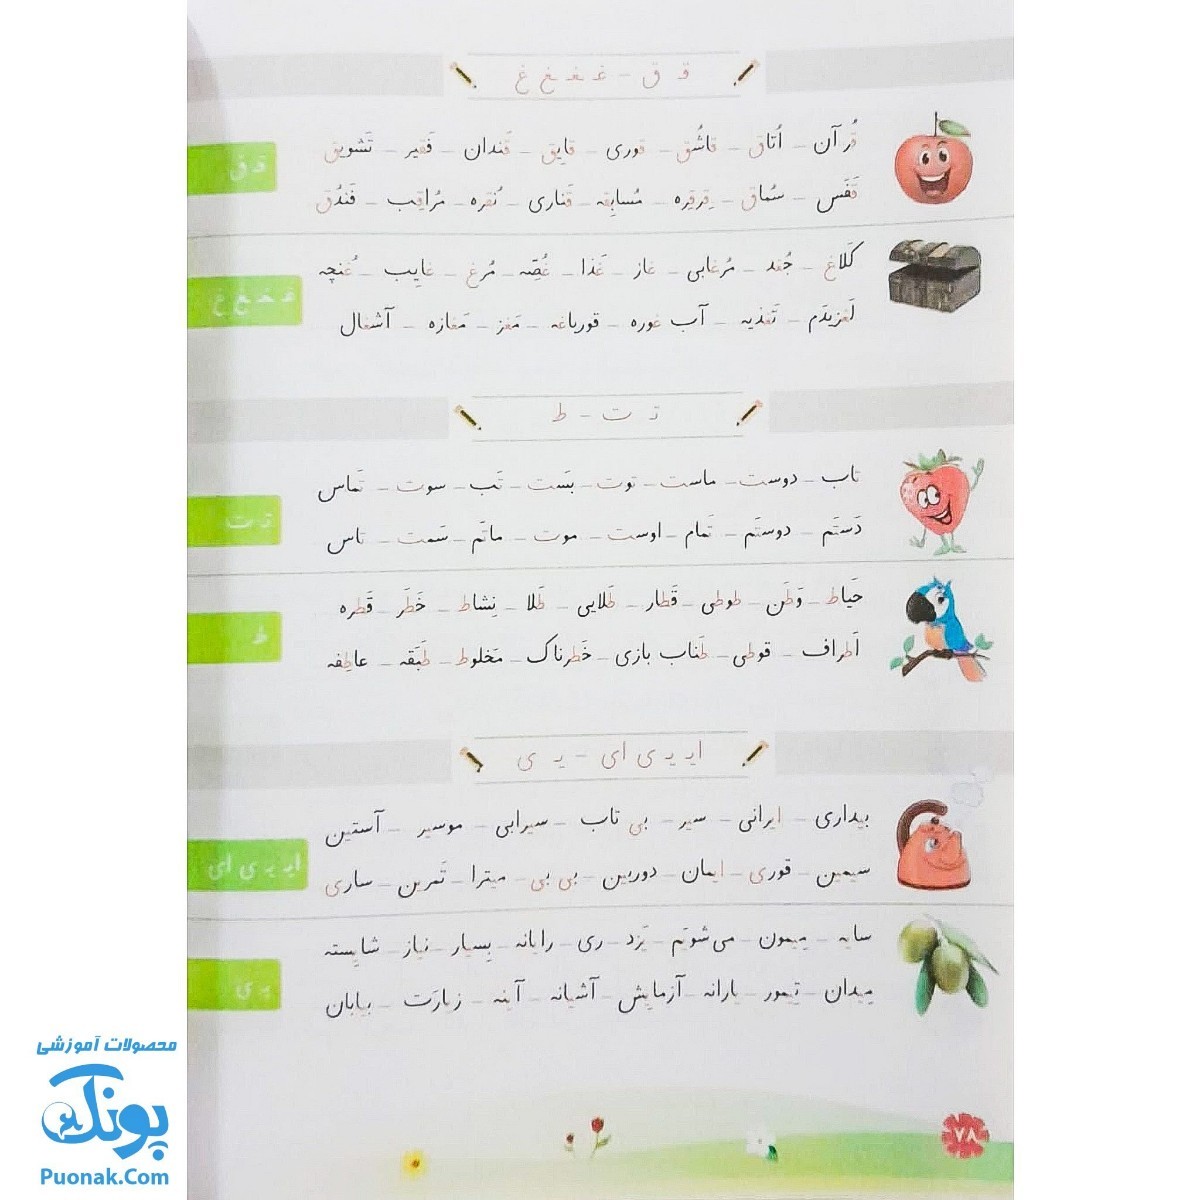 قـ ق - غـ ـغـ ـغ غ
قـ ق
قُرآن - اُتاق - قاشُق - قوری - قایِق - قَندان - فَقیر - تَشویق
قَفَس - سُماق - قِرقِره - مُسابِقه - قَناری - نُقره - مُراقِب - فَندُق
غـ ـغـ ـغ غ
کَلاغ - جُغد - مُرغابی - غاز - غَذا - غُصّه - مُرغ - غایِب - غُنچه
لَغزیدَم - تَغذیه - آب غوره - قورباغه - مَغز - مَغازه - آشغال
تـ ت - ط
تـ ت
تاب - دوست - ماست - توت - بَست - تَب - سوت - تَماس
دَستَم - دوستَم - تَمام - اوست - موت - ماتَم - سَمت - تاس
ط
حَیاط - وَطَن - طوطی - قَطار - طَلایی - طَلا - نِشاط - خَطَر - قَطره
اَطراف - قوطی - طَناب بازی - خَطرناک - مَخلوط - طَبَقه - عاطِفه
ایـ یـ ی ای - یـ ی
ایـ یـ ی ای
بیداری - ایرانی - سیر - بی تاب - سیرابی - موسیر - آستین
سیمین - قوری - ایمان - دوربین - بی بی - میترا - تَمرین - ساری
یـ ی
سایه - مِیمون - می‌شویَم - یَزد - ری - رایانه - بِسیار - نیاز - شایِسته
مِیدان - تِیمور - یارانه - آزمایِش - آشیانه - آینه - زیارَت - بیابان
۷۸
محصولات آموزشی
پونک
Puonak.Com